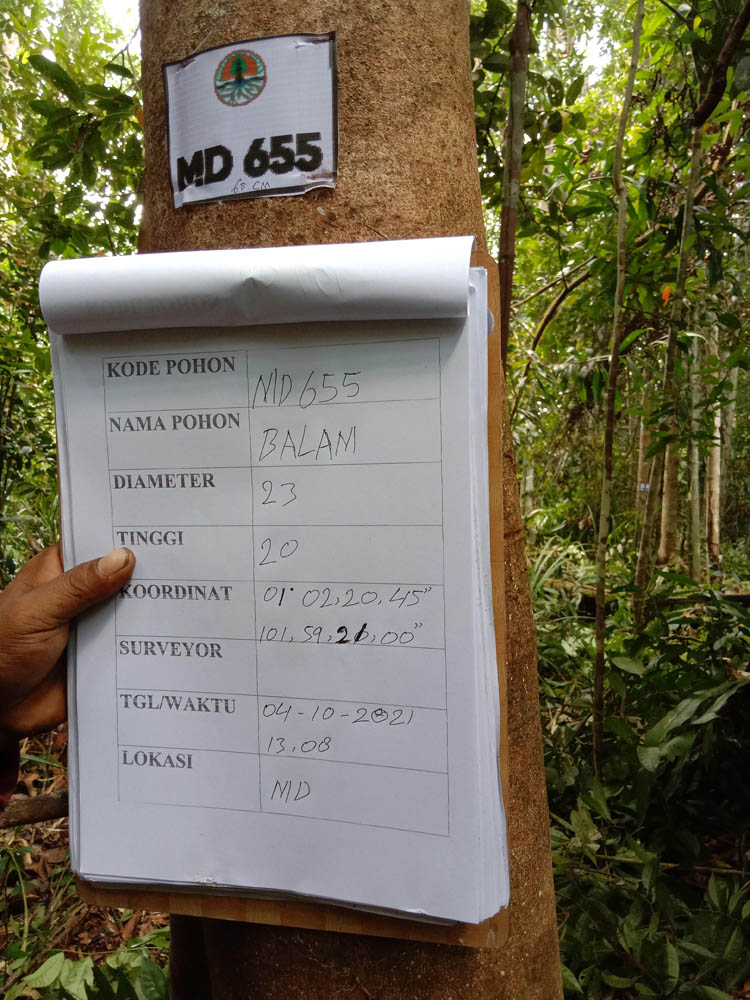 MD 655
68 CM
KODE POHON MD 655
NAMA POHON BALAM
DIAMETER 23
TINGGI 20
KOORDINAT 01° 02, 20, 45"
101, 59, 21, 00"
SURVEYOR
TGL/WAKTU 04-10-2021
13,08
LOKASI MD